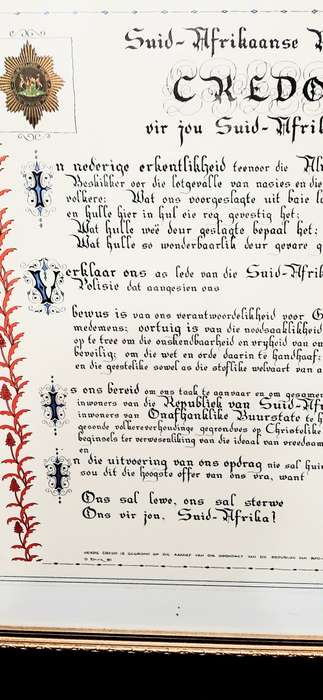 Suid-Afrikaanse P
CREDO
vir jou Suid-Afrik
In nederige erkentlikheid teenoor die Al
Beskikker oor die lotgevalle van nasies en die
volkere: Wat ons voorgeslagte uit baie la
en hulle hier in hul eie reg gevestig het;
Wat hulle weë deur geslagte bepaal het:
Wat hulle so wonderbaarlik deur gevare g
Verklaar ons as lede van die Suid-Afrik
Polisie dat aangesien ons
bewus is van ons verantwoordelikheid voor G
medemens; oortuig is van die noodsaaklikheid
op te tree om die onskendbaarheid en vryheid van on
beveilig; om die wet en orde daarin te handhaaf;
en die geestelike sowel as die stoflike welvaart van a
Is ons bereid om ons taak te aanvaar en om gesamen
inwoners van die Republiek van Suid-Afr
inwoners van Onafhanklike Buurstate te h
gesonde volkereverhoudinge gegrondves op Christelike
beginsels ter verwesenliking van die ideaal van vreedsam
en
In die uitvoering van ons opdrag nie sal huiw
sou dit die hoogste offer van ons vra, want
Ons sal lewe, ons sal sterwe
Ons vir jou, Suid-Afrika!
HIERDIE CREDO IS GEGROND OP DIE AANHEF VAN DIE GRONDWET VAN DIE REPUBLIEK VAN SUID-